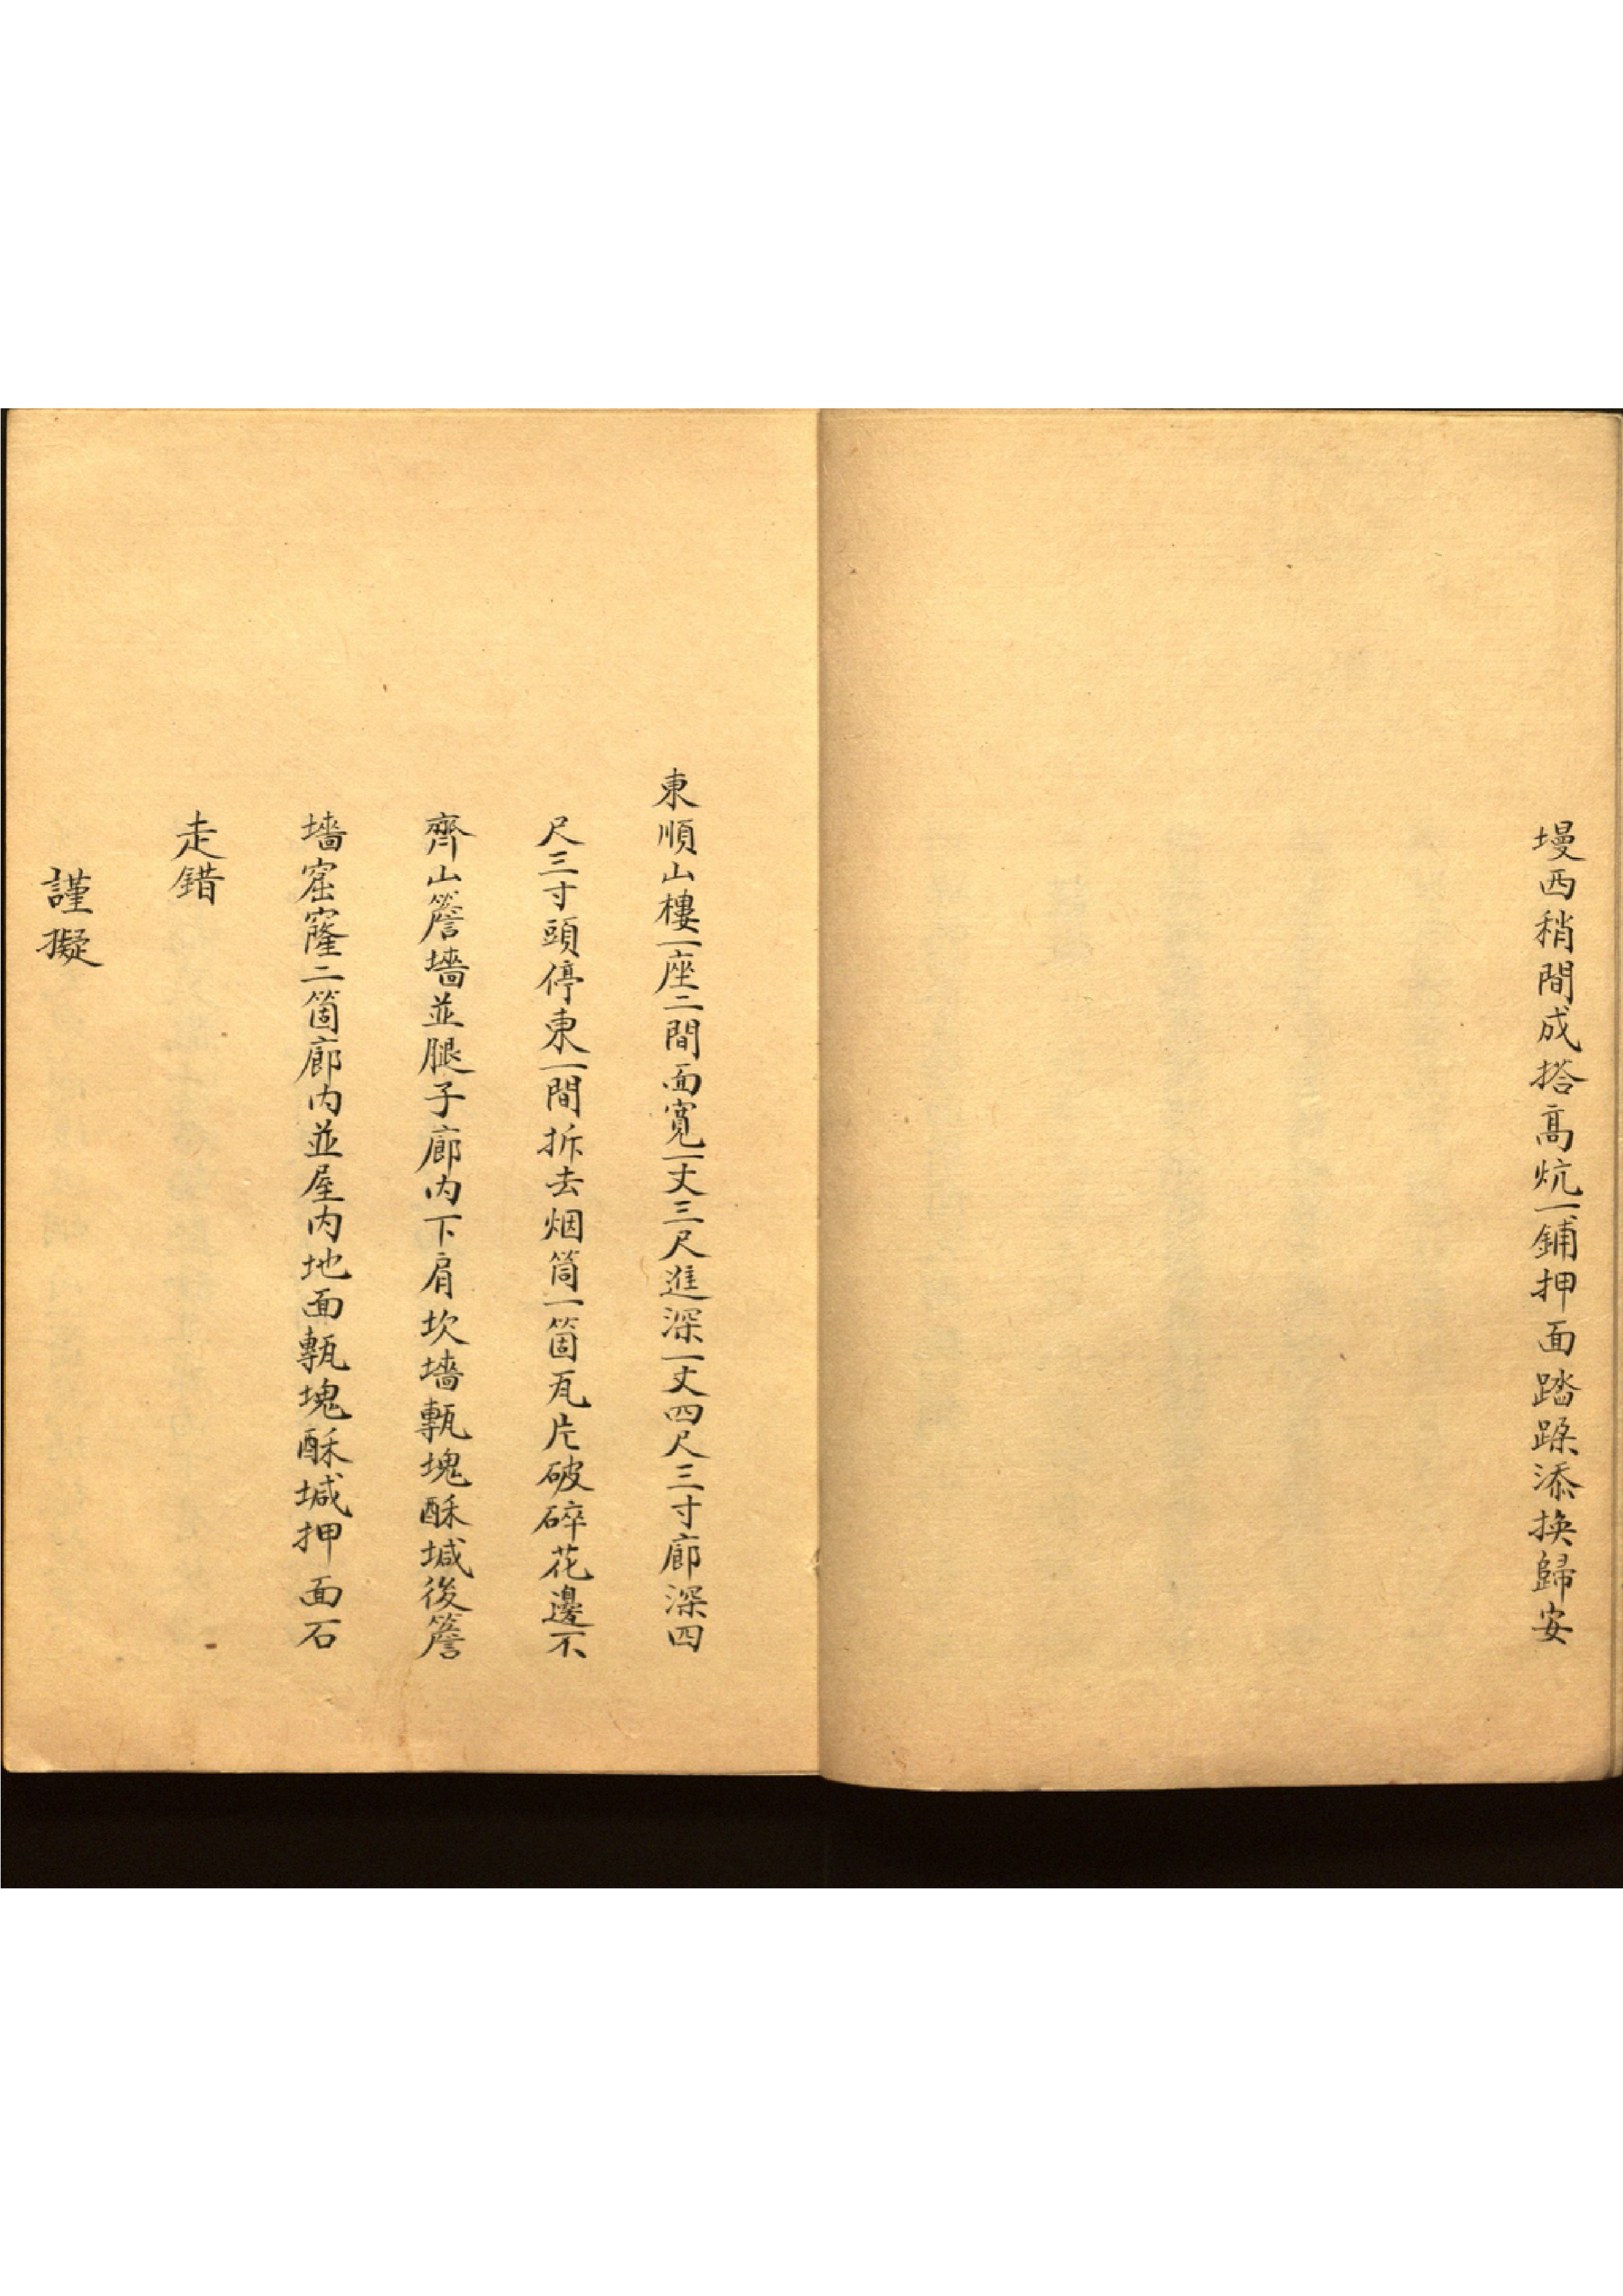 墁西稍間成搭高炕一鋪押面踏跺添換歸安
東順山樓一座二間面寬一丈三尺進深一丈四尺三寸廊深四
尺三寸頭停東一間拆去烟筒一箇瓦片破碎花邊不
齊山簷墻並腿子廊内下肩坎墻甎塊酥堿後簷
墻窟窿二箇廊内並屋内地面甎塊酥堿押面石
走錯
謹擬